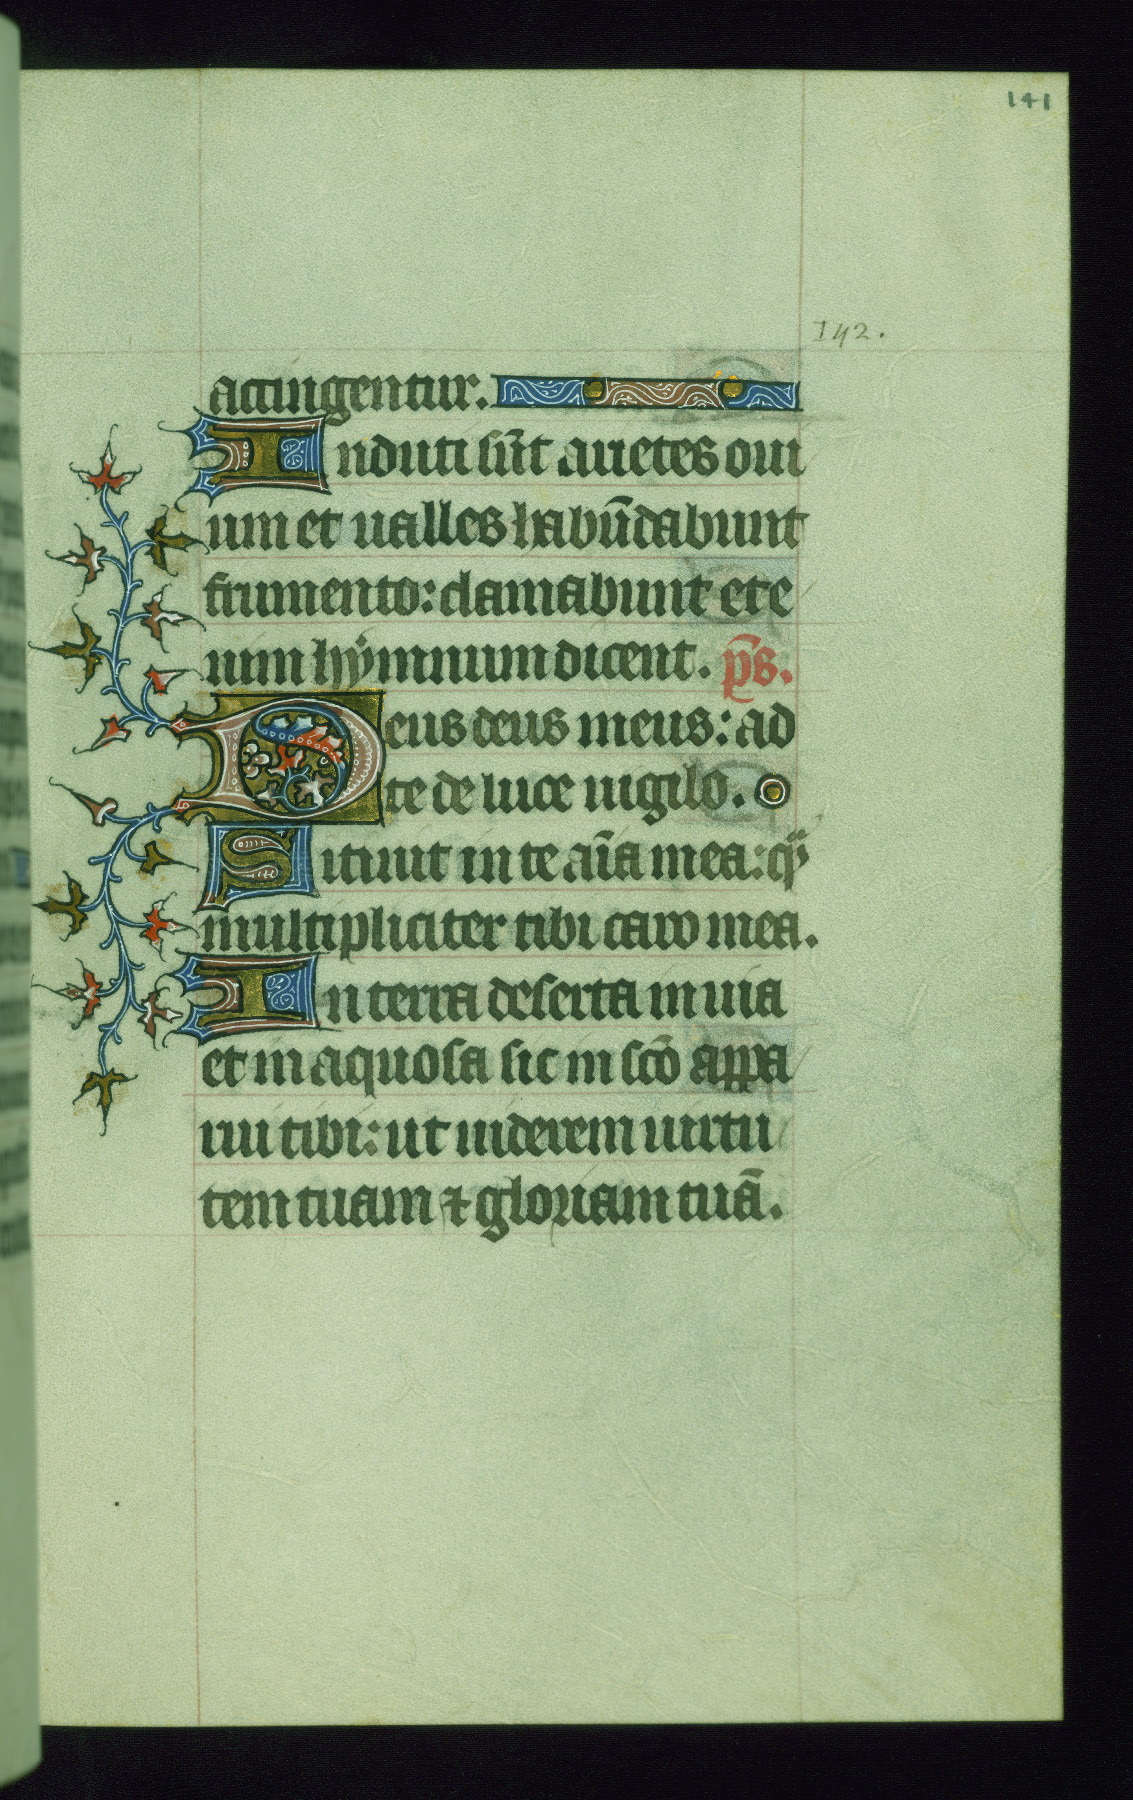 141
142.
accingentur.
Induti sūt arietes oui
um et ualles habūdabunt
frumento: clamabunt ete
nim hẏmnum dicent. p̄s.
Deus deus meus: ad
te de luce uigilo.
Sitiuit in te aīa mea: qͣ
multipliciter tibi caro mea.
In terra deserta inuia
et in aquosa sic in scō appa
rui tibi: ut uiderem uirtu
tem tuam ⁊ gloriam tuā.